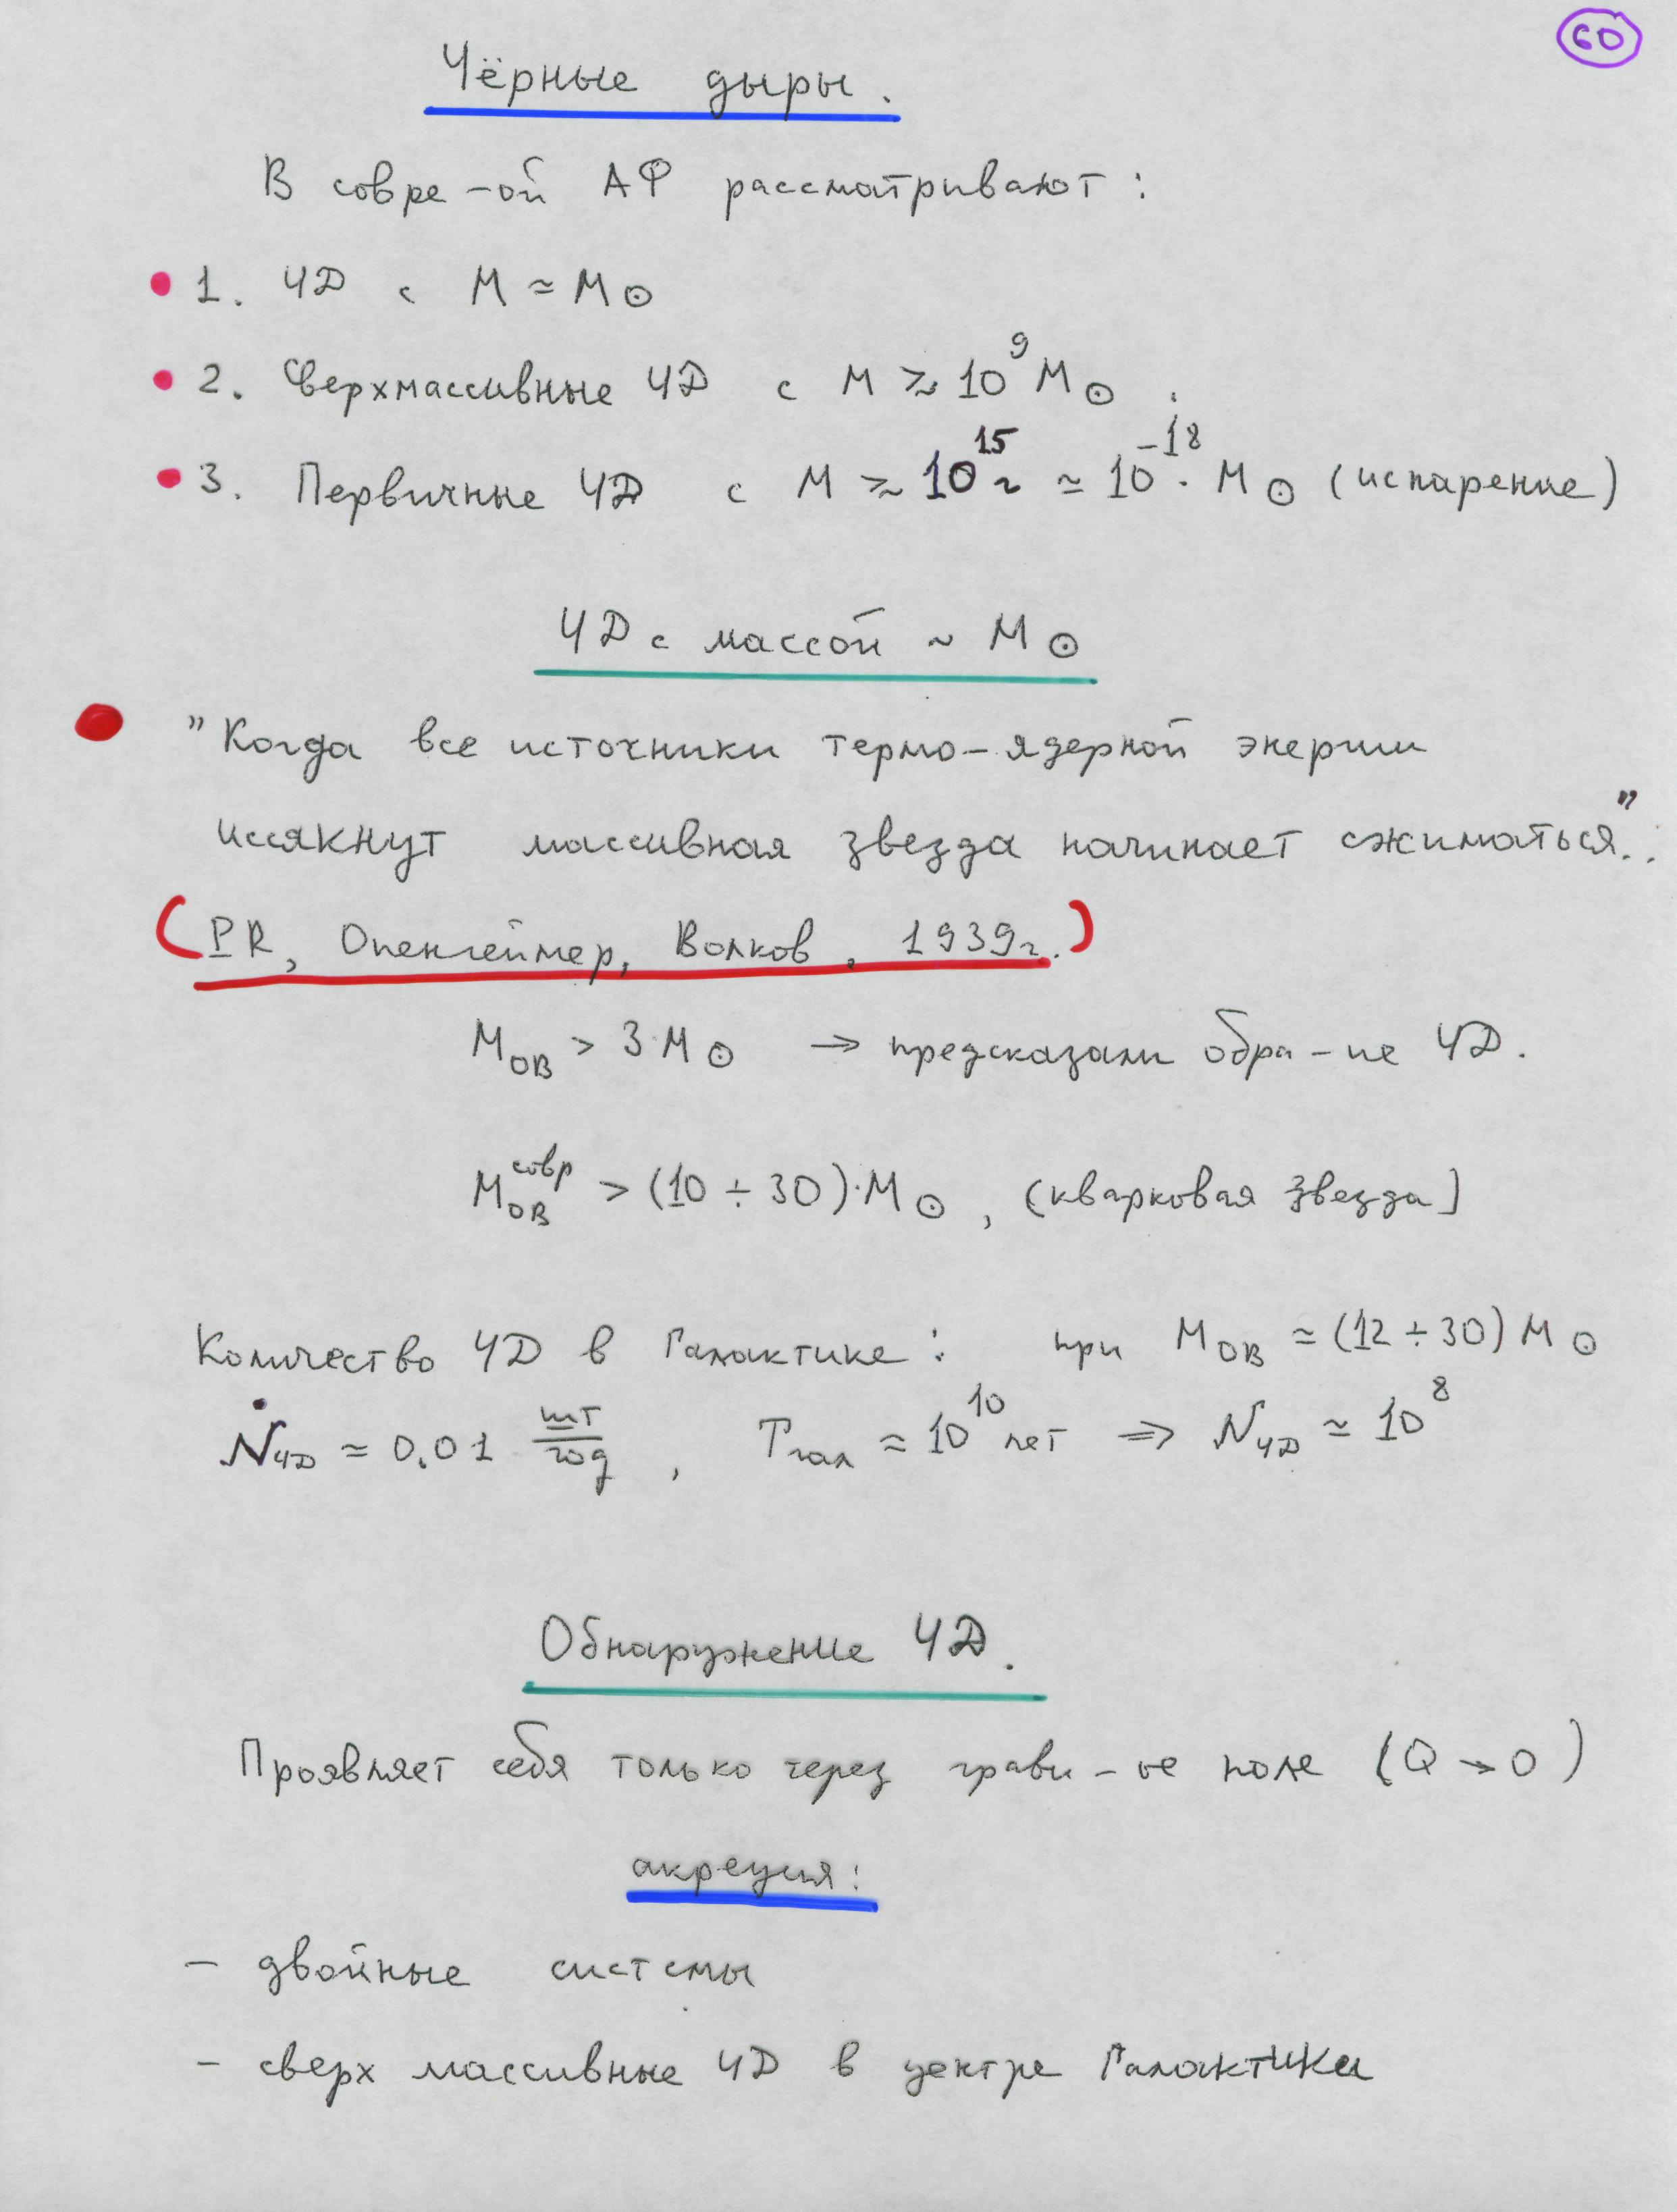 60
Чёрные дыры.
В совре-ой АФ рассматривают:
1. ЧД с M ≃ M☉
2. Сверхмассивные ЧД с M ≳ 10⁹ M☉.
3. Первичные ЧД с M ≳ 10¹⁵ г ≃ 10⁻¹⁸ · M☉ (испарение)
ЧД с массой ~ M☉
"Когда все источники термо-ядерной энергии
иссякнут массивная звезда начинает сжиматься"..
(PR, Опенгеймер, Волков, 1939г.)
M_ОВ > 3·M☉ → предсказали обра-ие ЧД.
M_ОВ^совр > (10 ÷ 30)·M☉, (кварковая звезда)
Количество ЧД в Галактике: при M_ОВ ≃ (12 ÷ 30) M☉
Ṅ_ЧД ≃ 0.01 шт/год, T_гал ≃ 10¹⁰ лет ⇒ N_ЧД ≃ 10⁸
Обнаружение ЧД.
Проявляет себя только через грави-ое поле (Q → 0)
акреция:
- двойные системы
- сверх массивные ЧД в центре Галактики